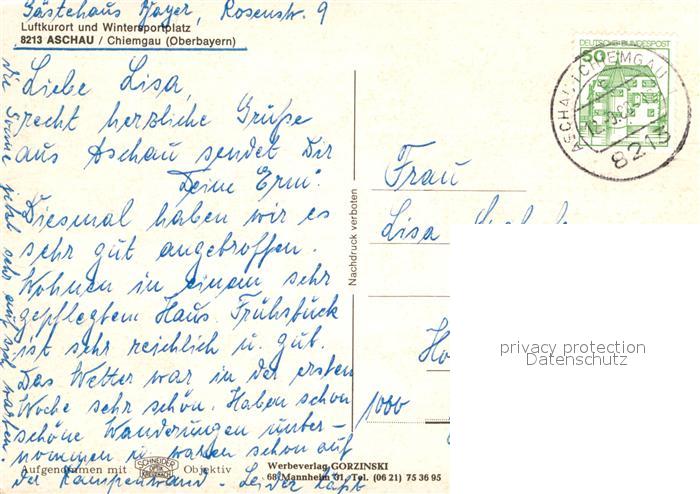 Gästehaus Bayer, Rosenstr. 9
Luftkurort und Wintersportplatz
8213 ASCHAU / Chiemgau (Oberbayern)
Liebe Lisa,
recht herzliche Grüße
aus Aschau sendet Dir
Deine Erni.
Diesmal haben wir es
sehr gut angetroffen.
Wohnen in einem sehr
gepflegten Haus. Frühstück
ist sehr reichlich u. gut.
Das Wetter war in der ersten
Woche sehr schön. Haben schon
schöne Wanderungen unter-
nommen u. waren schon auf
der Kampenwand. Leider läßt
die Sonne jetzt sehr auf sich warten.
Aufgenommen mit
SCHNEIDER
KREUZNACH
Objektiv
Nachdruck verboten
Werbeverlag GORZINSKI
68 Mannheim 01, Tel. (06 21) 75 36 95
DEUTSCHE BUNDESPOST
50
ASCHAU I. CHIEMGAU
8213
Frau
Lisa
Ho
1000
privacy protection
Datenschutz